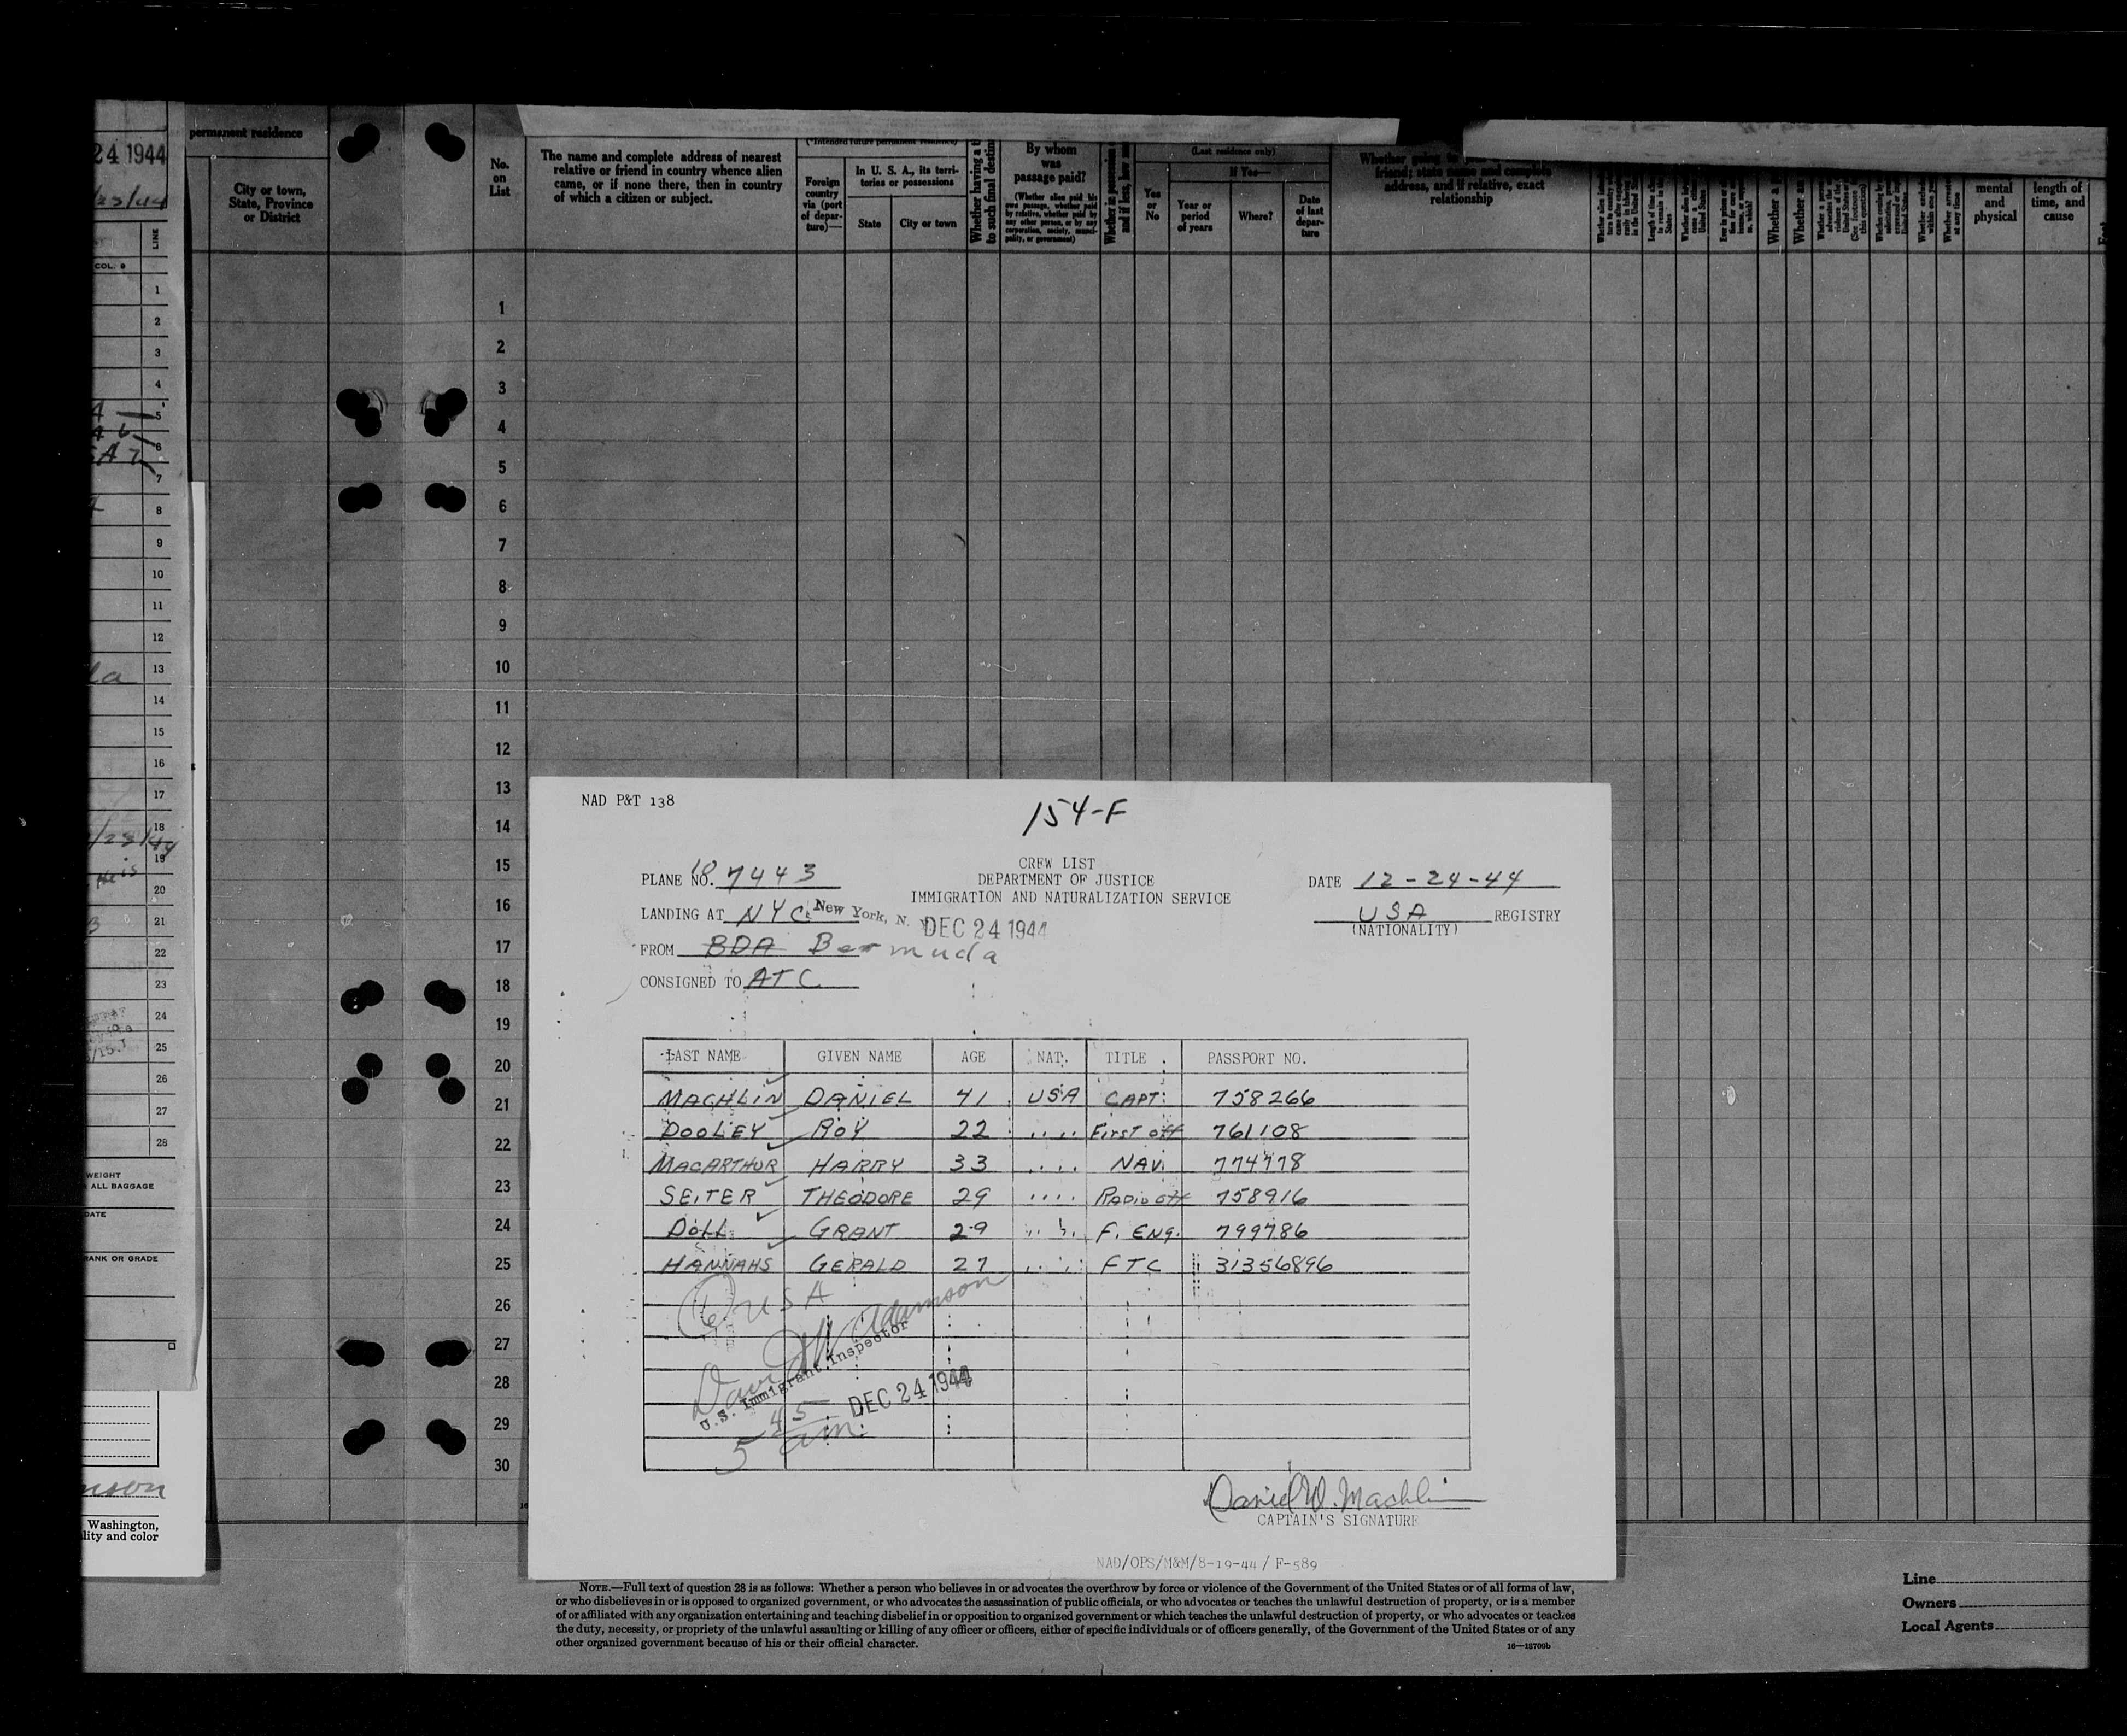 24 1944
/23/44
LINE
COL. 8
1
2
3
4
5
6
7
8
9
10
11
12
13
14
15
16
17
18
19
20
21
22
23
24
25
26
27
28
WEIGHT
ALL BAGGAGE
DATE
RANK OR GRADE
Washington,
lity and color
permanent residence
City or town,
State, Province
or District
No.
on
List
The name and complete address of nearest
relative or friend in country whence alien
came, or if none there, then in country
of which a citizen or subject.
(*Intended future permanent residence)
Foreign
country
via (port
of depar-
ture)—
In U. S. A., its terri-
tories or possessions
State
City or town
Whether having a ti
to such final destin
By whom
was
passage paid?
(Whether alien paid his
own passage, whether paid
by relative, whether paid by
any other person, or by any
corporation, society, munici-
pality, or government)
Whether in possession
and if less, how
Yes
or
No
(Last residence only)
If Yes—
Year or
period
of years
Where?
Date
of last
depar-
ture
Whether going to
friend; state name and complete
address, and if relative, exact
relationship
Whether a
Whether an
mental
and
physical
length of
time, and
cause
1
2
3
4
5
6
7
8
9
10
11
12
13
14
15
16
17
18
19
20
21
22
23
24
25
26
27
28
29
30
NAD P&T 138
154-F
CREW LIST
DEPARTMENT OF JUSTICE
IMMIGRATION AND NATURALIZATION SERVICE
PLANE NO. 107443
DATE 12-24-44
LANDING AT NYC New York, N. Y. DEC 24 1944
USA REGISTRY
(NATIONALITY)
FROM BDA Bermuda
CONSIGNED TO ATC
LAST NAME GIVEN NAME AGE NAT. TITLE PASSPORT NO.
MACHLIN DANIEL 41 USA CAPT. 758266
DOOLEY ROY 22 " " First off 761108
MACARTHUR HARRY 33 " " NAV. 774778
SEITER THEODORE 29 " " RADIO off 758916
DOLL GRANT 29 " " F. ENG. 799786
HANNAHS GERALD 27 " " FTC 31356896
6 USA
Adamson
U.S. Immigrant Inspector
DEC 24 1944
5 45 am
Daniel W. Machlin
CAPTAIN'S SIGNATURE
NAD/OPS/M&M/8-19-44 / F-589
NOTE.—Full text of question 28 is as follows: Whether a person who believes in or advocates the overthrow by force or violence of the Government of the United States or of all forms of law,
or who disbelieves in or is opposed to organized government, or who advocates the assassination of public officials, or who advocates or teaches the unlawful destruction of property, or is a member
of or affiliated with any organization entertaining and teaching disbelief in or opposition to organized government or which teaches the unlawful destruction of property, or who advocates or teaches
the duty, necessity, or propriety of the unlawful assaulting or killing of any officer or officers, either of specific individuals or of officers generally, of the Government of the United States or of any
other organized government because of his or their official character.
16—18709b
Line
Owners
Local Agents